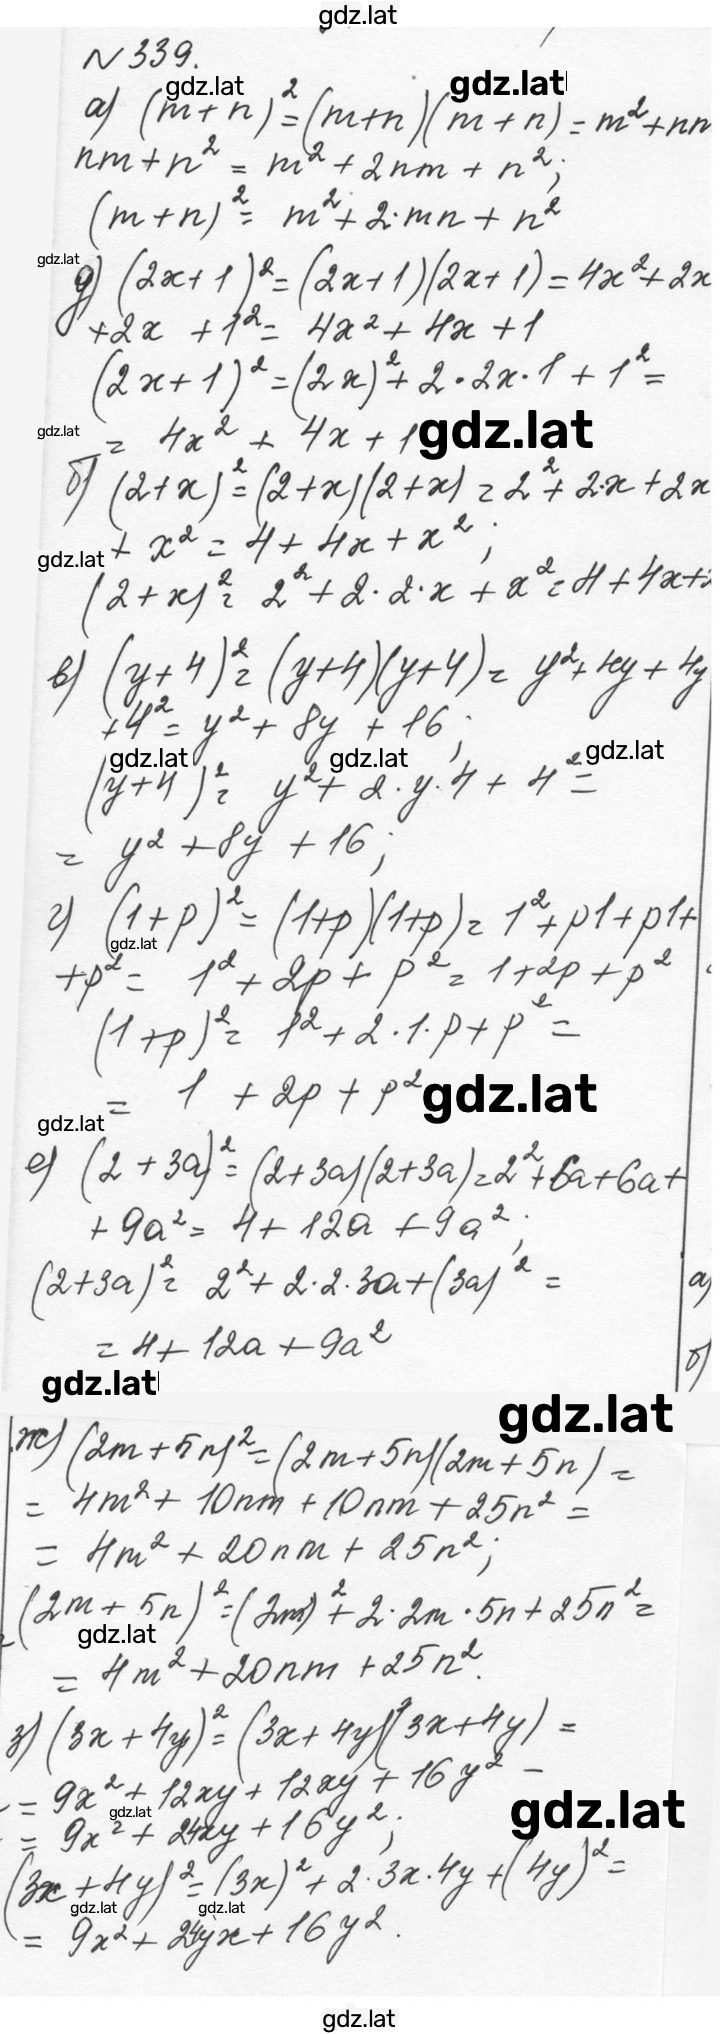 gdz.lat
N 339.
gdz.lat gdz.lat
а) (m+n)² = (m+n)(m+n) = m² + nm
nm + n² = m² + 2nm + n²;
(m+n)² = m² + 2·mn + n²
gdz.lat
д) (2x+1)² = (2x+1)(2x+1) = 4x² + 2x
+2x + 1² = 4x² + 4x + 1
(2x+1)² = (2x)² + 2·2x·1 + 1² =
gdz.lat
= 4x² + 4x + 1 gdz.lat
б) (2+x)² = (2+x)(2+x) = 2² + 2·x + 2x
gdz.lat
+ x² = 4 + 4x + x²;
(2+x)² = 2² + 2·2·x + x² = 4 + 4x +
в) (y+4)² = (y+4)(y+4) = y² + 4y + 4y
+4² = y² + 8y + 16;
gdz.lat gdz.lat gdz.lat
(y+4)² = y² + 2·y·4 + 4² =
= y² + 8y + 16;
г) (1+p)² = (1+p)(1+p) = 1² + p1 + p1 +
gdz.lat
+p² = 1² + 2p + p² = 1 + 2p + p²
(1+p)² = 1² + 2·1·p + p² =
= 1 + 2p + p² gdz.lat
gdz.lat
е) (2+3a)² = (2+3a)(2+3a) = 2² + 6a + 6a +
+ 9a² = 4 + 12a + 9a²;
(2+3a)² = 2² + 2·2·3a + (3a)² =
а)
= 4 + 12a + 9a²
б)
gdz.lat gdz.lat
ж) (2m+5n)² = (2m+5n)(2m+5n) =
= 4m² + 10nm + 10nm + 25n² =
= 4m² + 20nm + 25n²;
(2m+5n)² = (2m)² + 2·2m·5n + 25n² =
gdz.lat
= 4m² + 20nm + 25n².
з) (3x+4y)² = (3x+4y)(3x+4y) =
= 9x² + 12xy + 12xy + 16y² =
gdz.lat gdz.lat
= 9x² + 24xy + 16y²;
(3x+4y)² = (3x)² + 2·3x·4y + (4y)² =
gdz.lat gdz.lat
= 9x² + 24yx + 16y².
gdz.lat